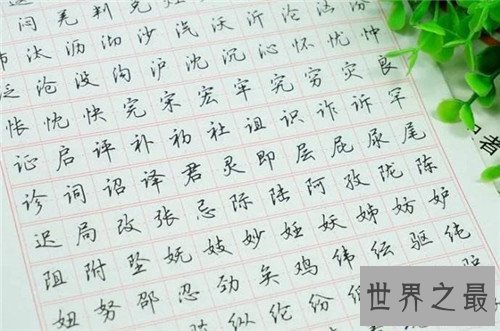 羌 判
汰 沥 沏 沙 汽 沃 沂 沦 汹 汾
泛 沧 没 沟 沪 沈 沉 沁 怀 忧 忡
怅 忱 快 完 宋 宏 牢 究 穷 灾 良
证 启 评 补 初 社 诅 识 诈 诉 罕
诊 词 诏 译 君 灵 即 层 屁 尿 尾
迟 局 改 张 忌 际 陆 阿 孜 陇 陈
阻 附 坠 妩 妓 妙 妊 妖 姊 妨 妒
妞 努 邵 忍 劲 矣 鸡 纬 纭 驱 纯
纵 纶 纷
者
世界之最